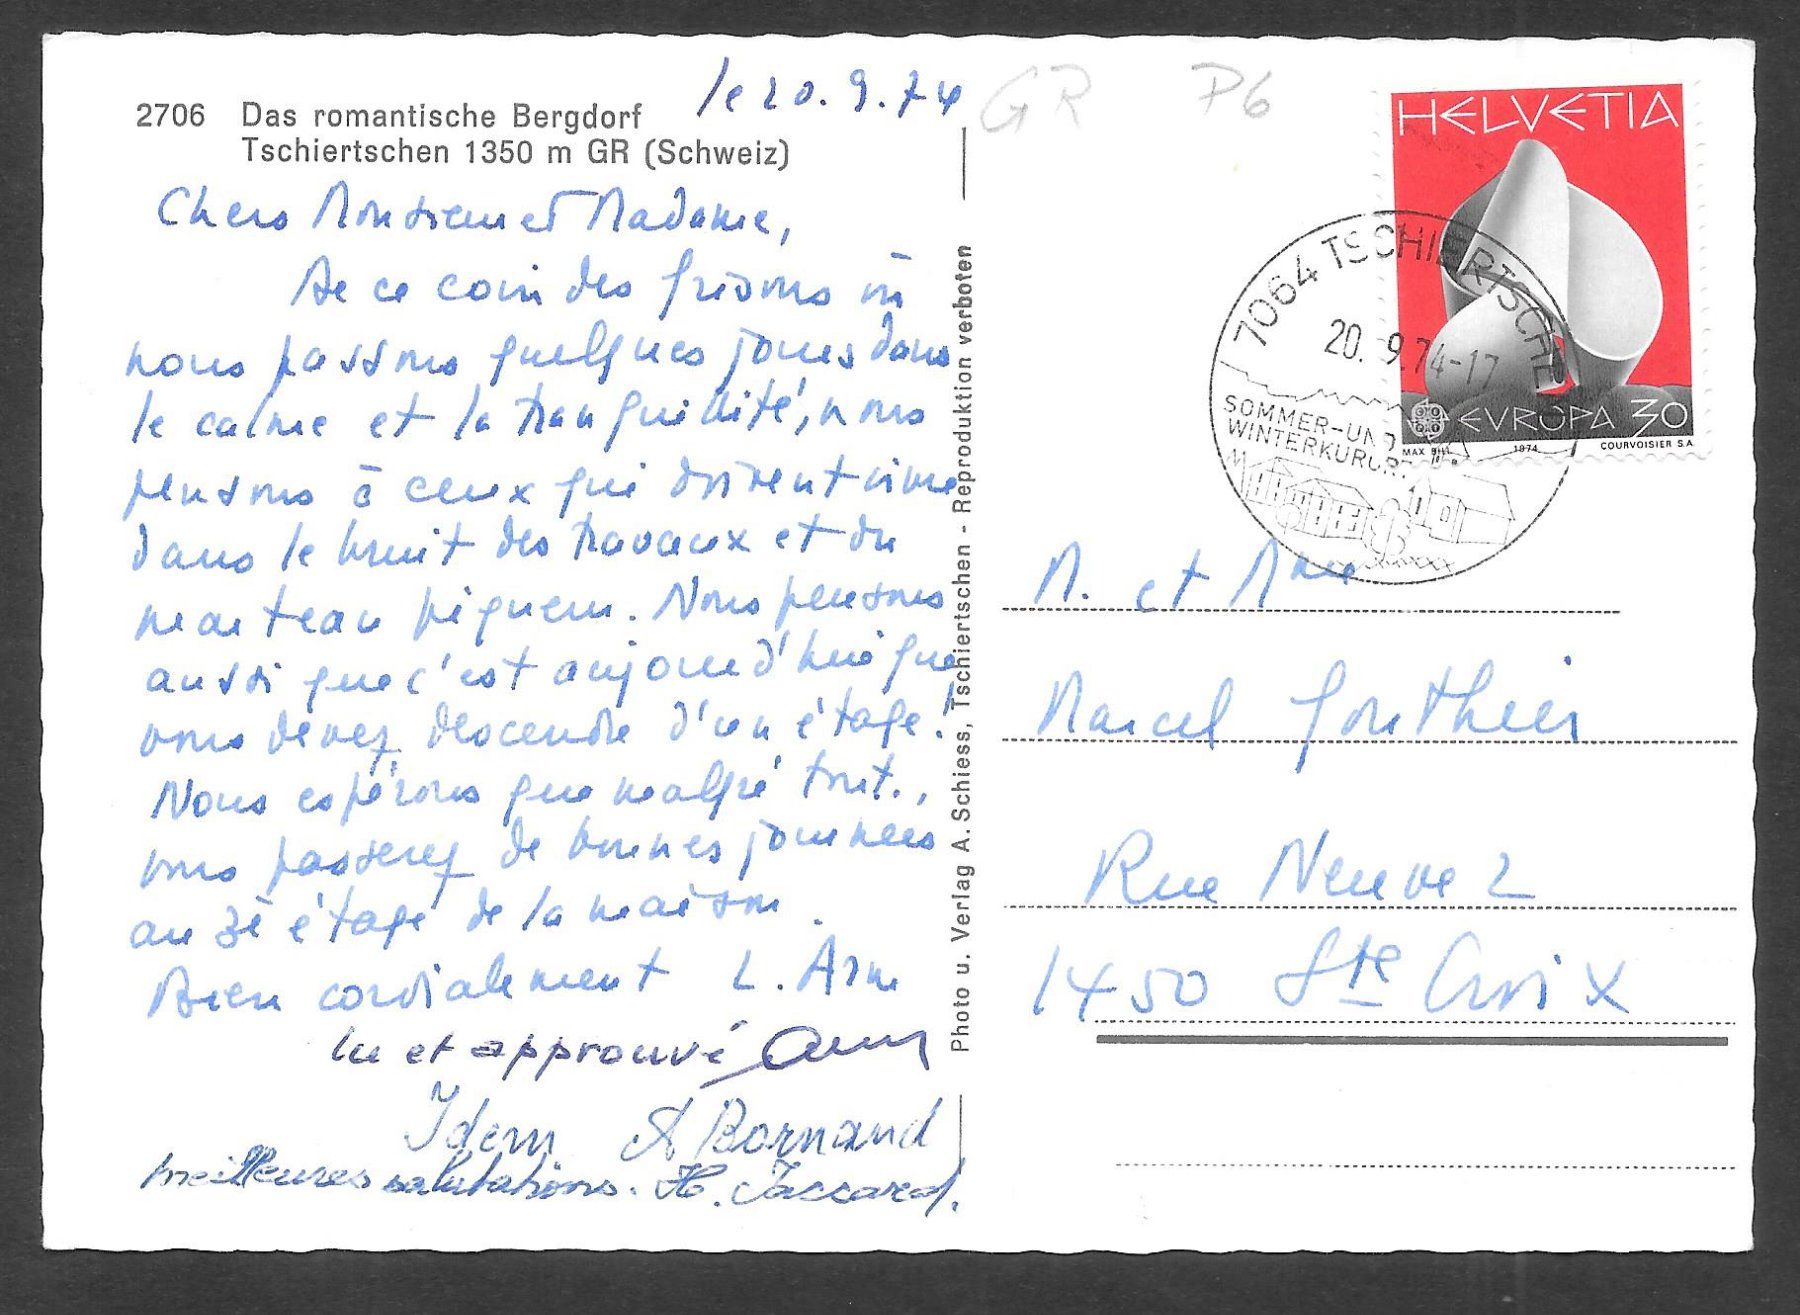 2706 Das romantische Bergdorf
Tschiertschen 1350 m GR (Schweiz)
le 20.9.74
Chers Monsieur et Madame,
De ce coin des Grisons où
nous passons quelques jours dans
le calme et la tranquillité, nous
pensons à ceux qui doivent vivre
dans le bruit des travaux et du
marteau piqueur. Nous pensons
aussi que c'est aujourd'hui que
vous devez descendre d'un étage!
Nous espérons que malgré tout,
vous passerez de bonnes journées
au 3è étage de la maison.
Bien cordialement L.
lu et approuvé
Idem A Bornand
meilleures salutations. H. Jaccard.
Photo u. Verlag A. Schiess, Tschiertschen - Reproduktion verboten
GR P6
HELVETIA
EVROPA 30
MAX BILL 1974 COURVOISIER S.A.
7064 TSCHIERTSCHEN
20.9.74-17
SOMMER-UND
WINTERKURORT
M. et Mme
Marcel Gonthier
Rue Neuve 2
1450 Ste Croix